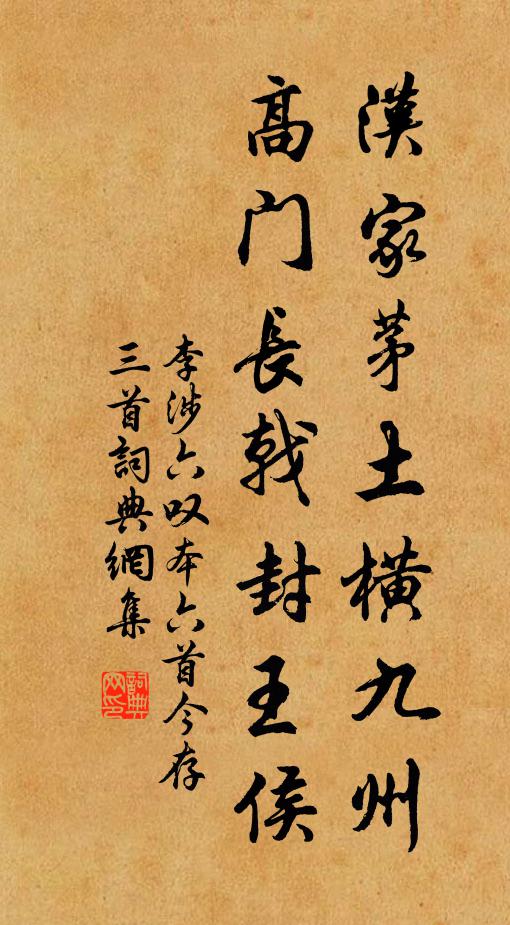 漢家茅土橫九州
高门長戟封王侯
李涉六叹本六首今存
三首詞典網集
詞典网印